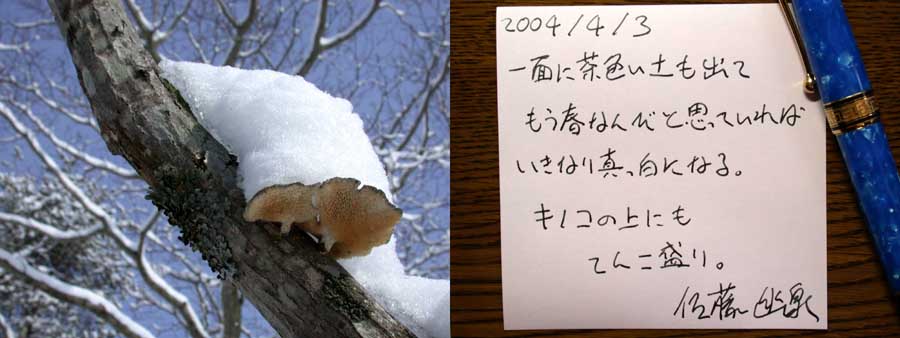 2004/4/3
一面に茶色い土も出て
もう春なんだと思っていれば
いきなり真っ白になる。
キノコの上にも
てんこ盛り。
佐藤